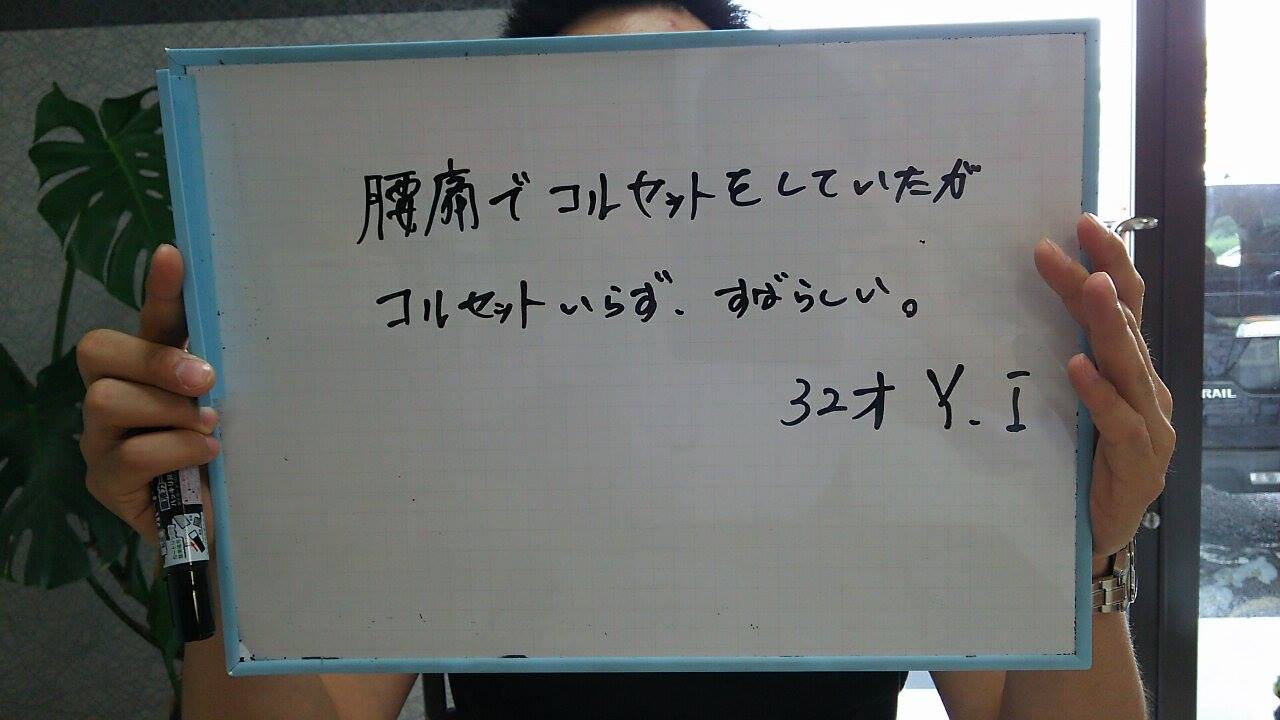 腰痛でコルセットをしていたが
コルセットいらず、すばらしい。
32才 Y.I
RAIL